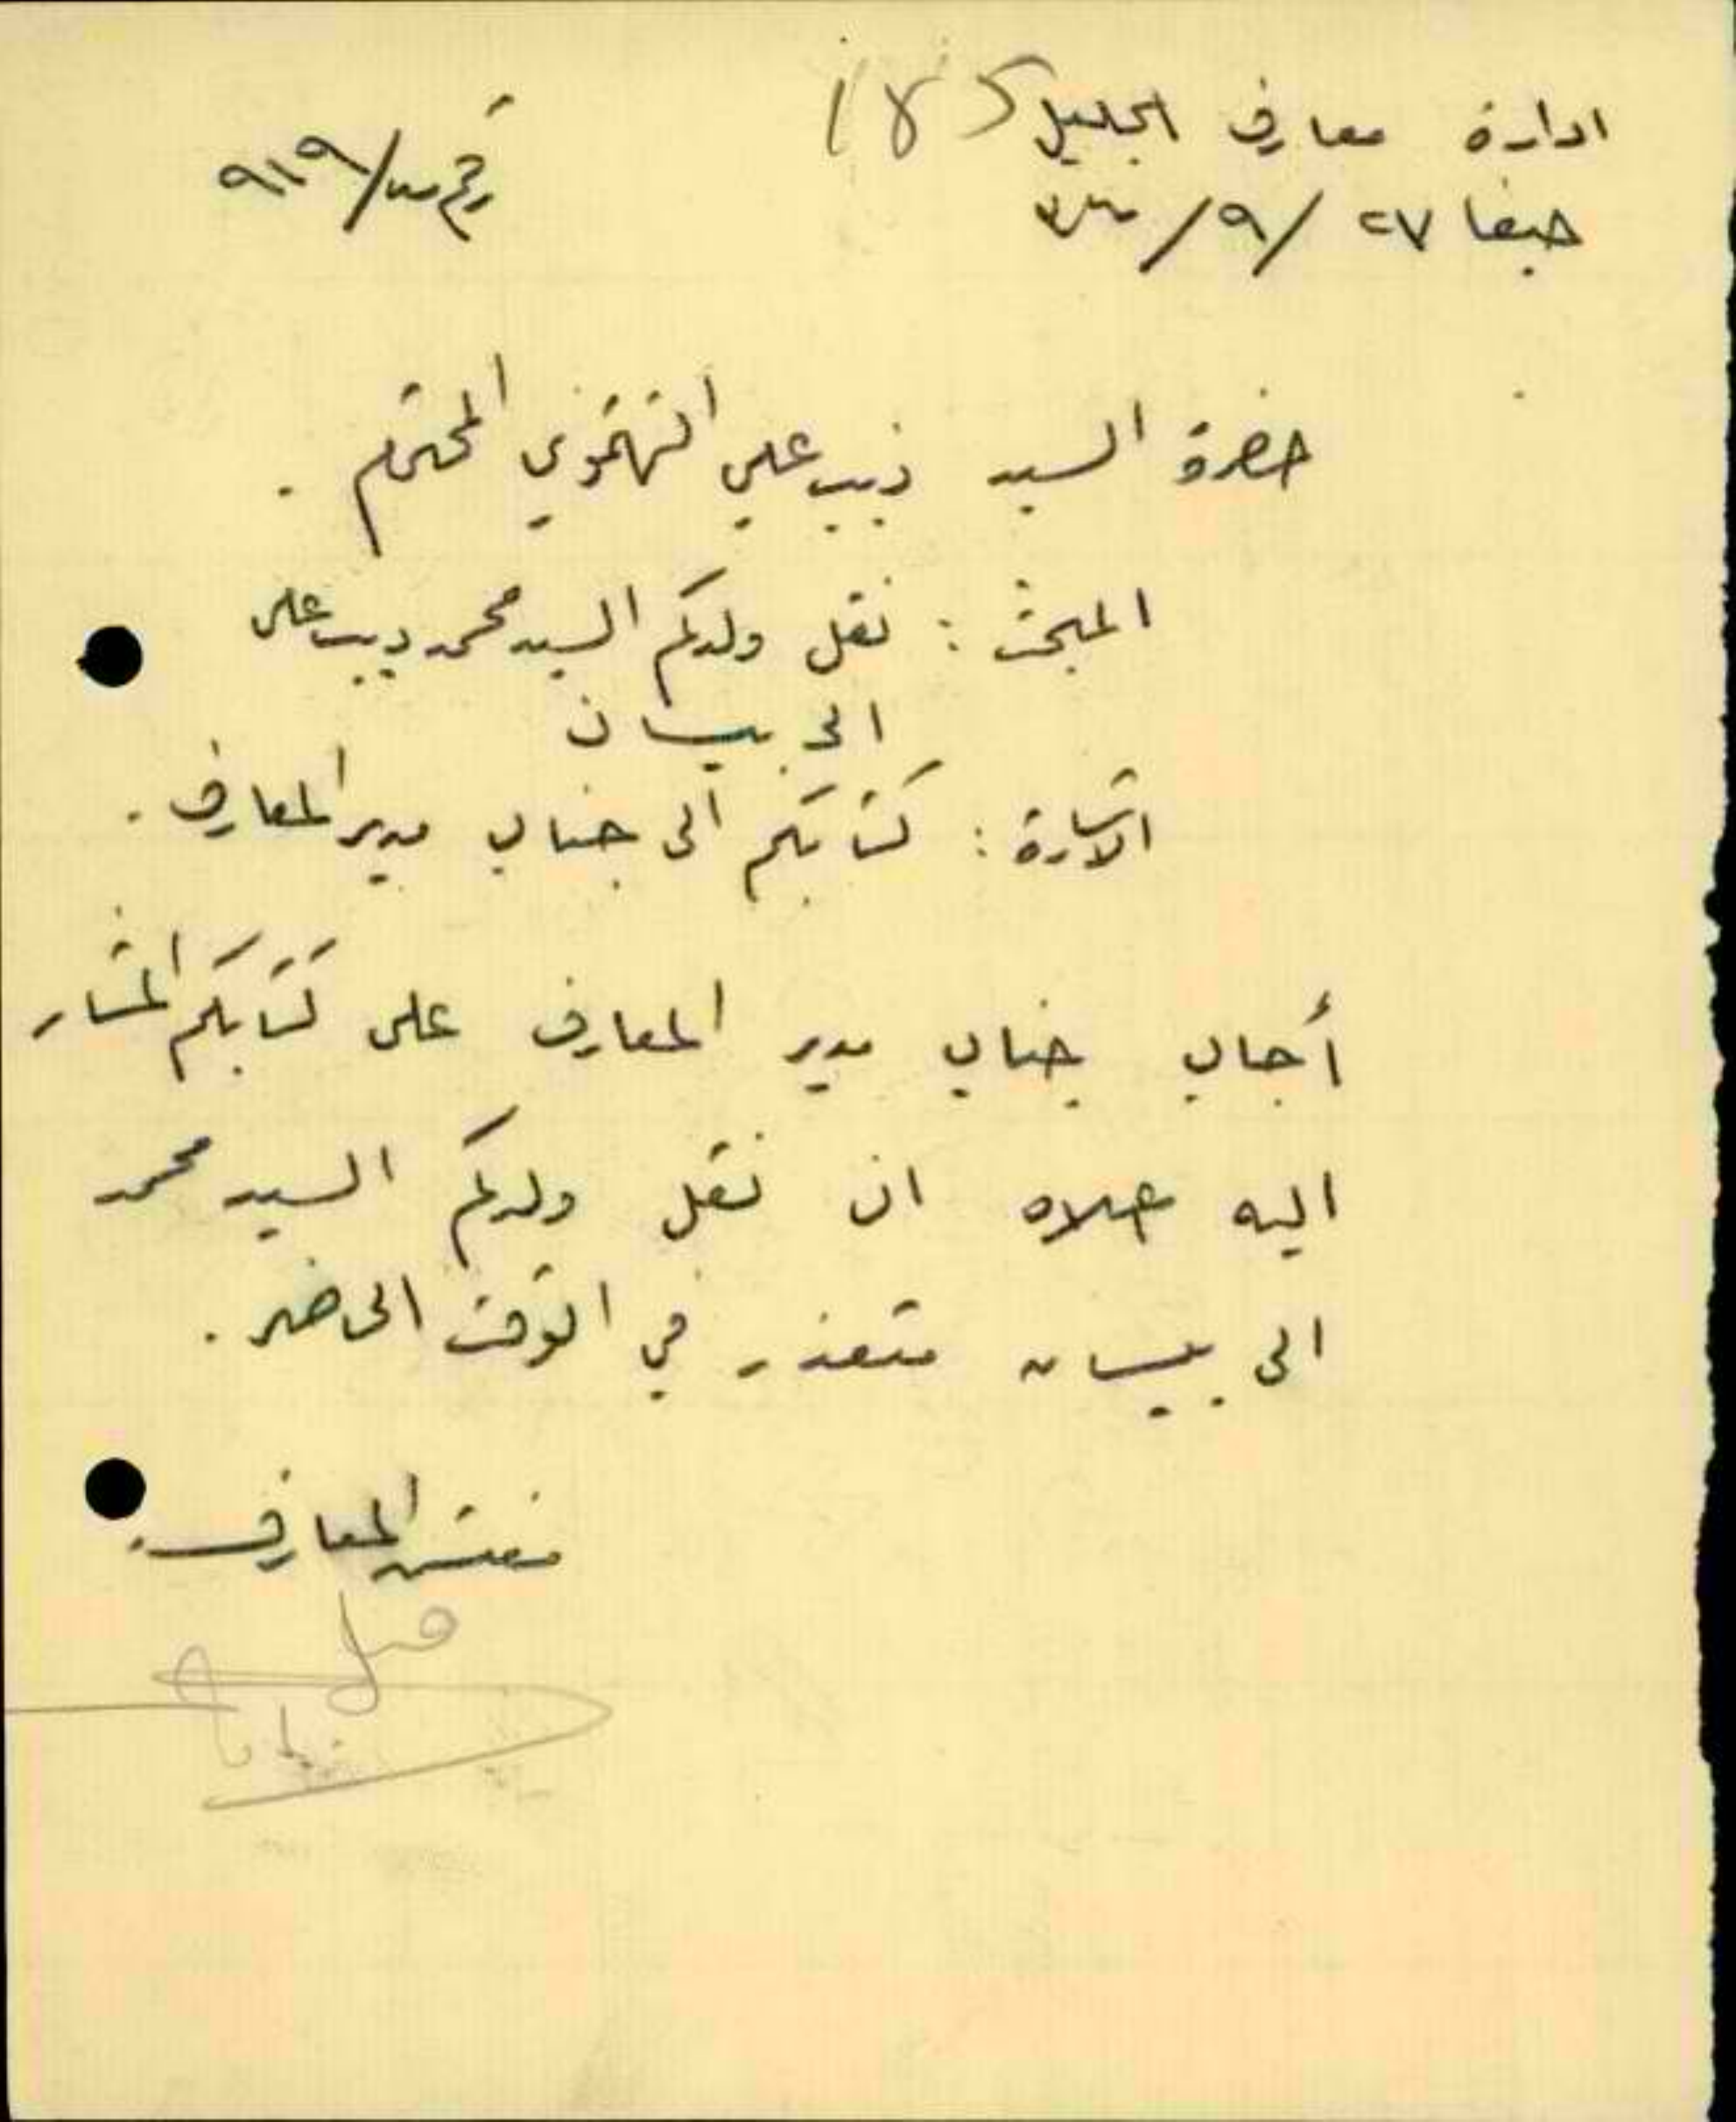 ادارة معارف الجليل
حيفا ٢٧ /٩/
رقم س/٩١٩
حضرة السيد ذيب علي المحترم .
المبحث : نقل ولدكم السيد محمد ذيب على
الى بيسان
الاشارة : كتابكم الى جناب مدير المعارف .
أجاب جناب مدير المعارف على كتابكم المشار
اليه اعلاه ان نقل ولدكم السيد محمد
الى بيسان متعذر في الوقت الحاضر .
مفتش المعارف